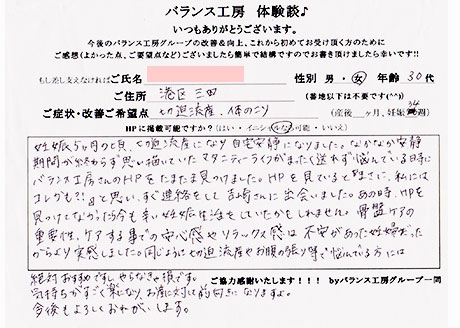 バランス工房 体験談♪
いつもありがとうございます。
今後のバランス工房グループの改善&向上、これから初めてお受け頂く方のために
ご感想(よかった点、ご要望点など)ございましたら簡単で結構ですのでお書き頂けましたら幸いです!!
もし差し支えなければご氏名 性別 男・女 年齢 30代
ご住所 港区 三田 (番地以下は不要です(^^))
ご症状・改善ご希望点 切迫流産、体のこり (産後 ヶ月、妊娠 34週)
HPに掲載可能ですか?(はい・イニシャルなら可能・いいえ)
妊娠5ヶ月の頃、切迫流産になり自宅安静になりました。なかなか安静
期間が終わらず思い描いていたマタニティーライフがまったく送れず悩んでいる時に
バランス工房さんのHPをたまたま見つけました。HPを見ていると まさに、私には
コレかも?!と思い、すぐ連絡をして 吉崎さんに出会いました。あの時、HPを
見つけてなかったら今も辛い妊娠生活をしていたかもしれません。骨盤ケアの
重要性、ケアする事での安心感やリラックス感は不安があった妊婦だった
からこそ実感しました。同じように切迫流産やお腹の張り等で悩んでいる方には
絶対おすすめですし、やらなきゃ損です。
気持ちがすごく楽になり、お産に対して前向きになりますよ。
今後もよろしくおねがいします。
ご協力感謝いたします!!! byバランス工房グループ一同